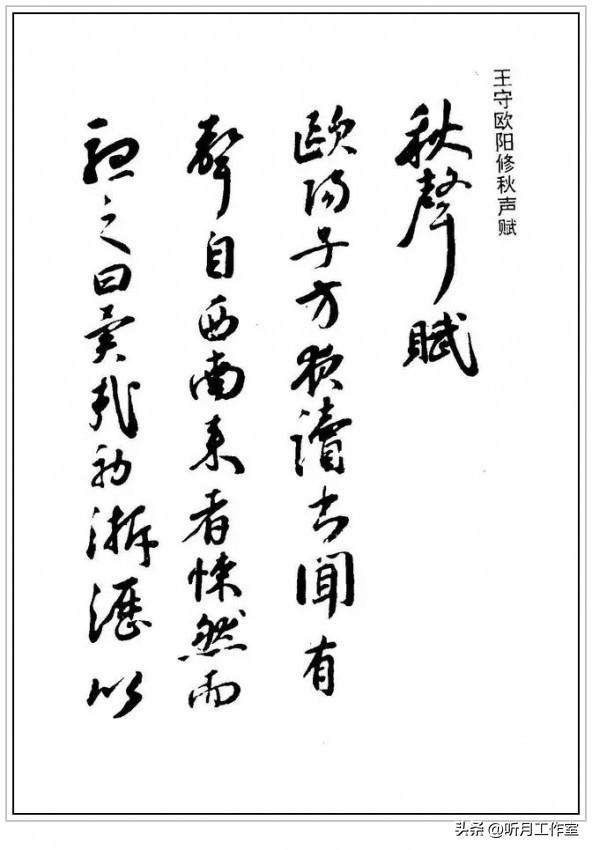 王守欧阳修秋声赋
秋聲賦
歐陽子方夜讀書聞有
聲自西南來者悚然而
聽之曰異哉初淅瀝以
头条 @听月工作室